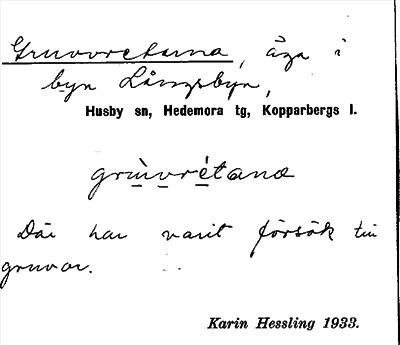 Gruvvretarna, äga i
byn Långsbyn,
Husby sn, Hedemora tg, Kopparbergs l.
grùvrétana
Där har varit försök till
gruvor.
Karin Hessling 1933.